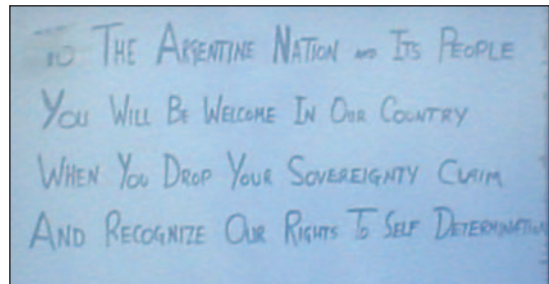 To The Argentine Nation and Its People
You Will Be Welcome In Our Country
When You Drop Your Sovereignty Claim
And Recognize Our Rights To Self Determination